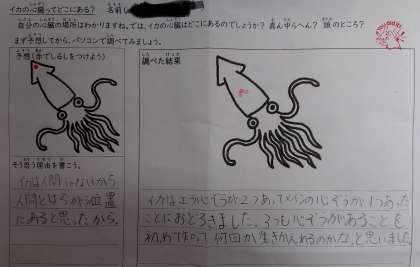 イカの心臓ってどこにある? 名前(
自分の心臓の場所はわかりますね。では、イカの心臓はどこにあるのでしょうか? 真ん中らへん? 頭のところ?
まず予想してから、パソコンで調べてみましょう。
予想(赤でしるしをつけよう)
調べた結果
そう思う理由を書こう。
イカは人間じゃないから
人間とはちがう位置
にあると思ったから。
イカはエラ心ぞうが2つあってメインの心ぞうが1つあった
ことにおどろきました。3つも心ぞうがあることを
初めて知って何回か生きかえれるのかな。と思いました